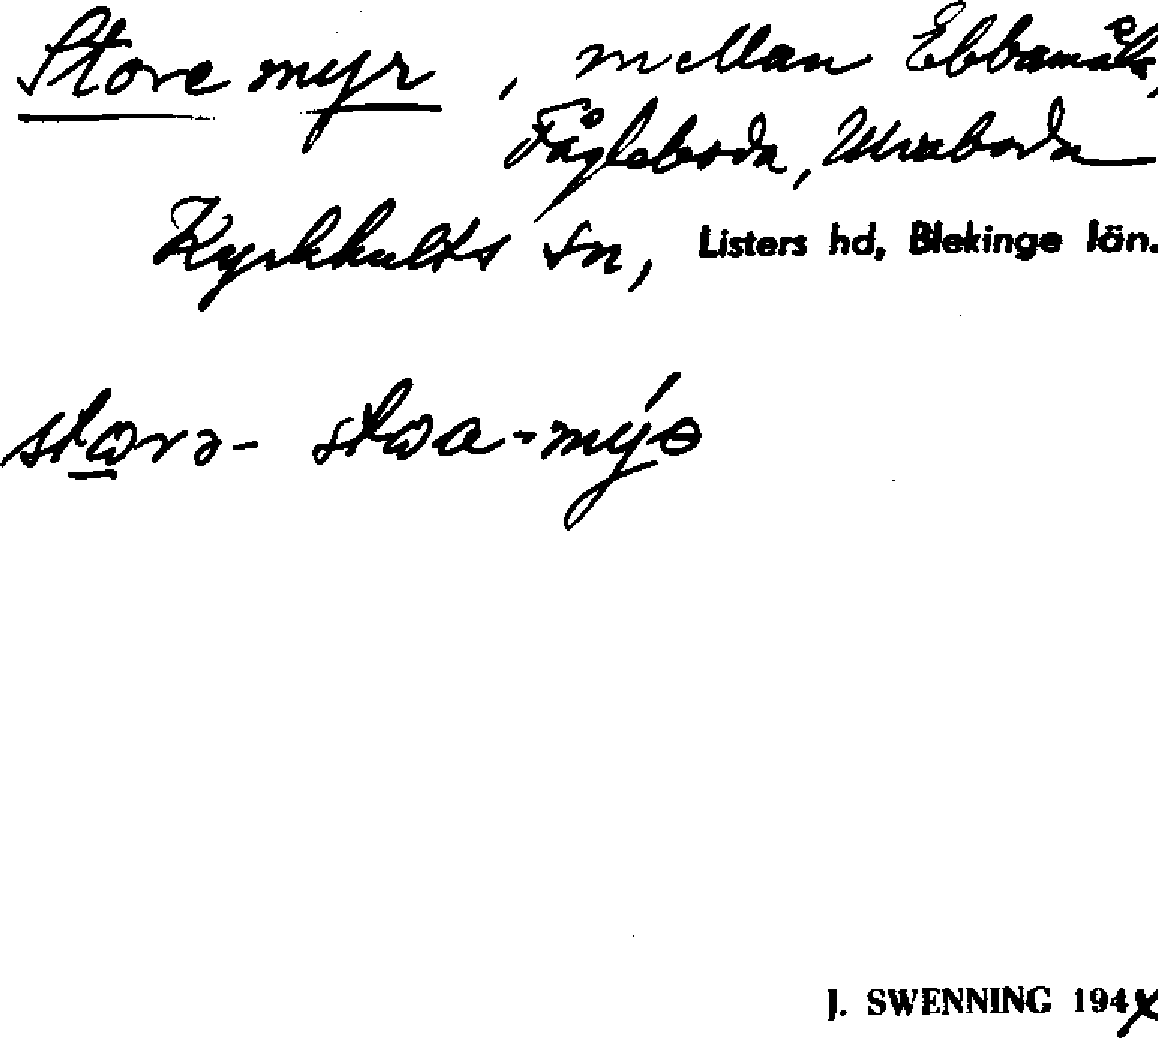 Store myr, mellan Ebbamåla,
Fågleboda, Ulvaboda
Kyrkhults sn, Listers hd, Blekinge län.
stωrə- stωa-mýə
J. SWENNING 194